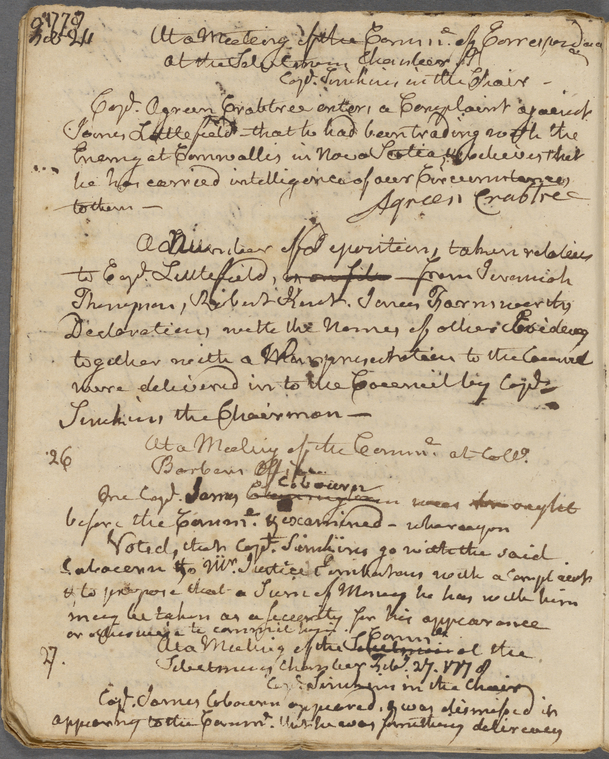 1778
Feb 24
At a Meeting of the Comm.ee of Correspondence
at the Selectmen Chamber
Cap.t Simkins in the Chair –
Cap.t Agreen Crabtree enters a Complaint against
James Littlefield – that he had been trading with the
Enemy at Cornwallis in Nova Scotia, & believes that
he has carried intelligence of our Circumstances
to them –
Agreen Crabtree
A Number of Depositions, taken relative
to Cap.t Littlefield, from Jeremiah
Thompson, Robert Kent, James Farnsworth,
Declarations with the Names of other Evidences
together with a Warm presentation to the Council
were delivered in to the Council by Cap.t
Simkins the Chairman –
26
At a Meeting of the Comm.ee at Coll.o
Barbers Office
One Cap.t James Cobourn was brought
before the Comm.ee & examined – whereupon
Voted, that Cap.t Simkins go with the said
Cabacern to Mr. Justice with a Complaint
& to propose that a Sum of Money he has with him
may be taken as a Security for his appearance
or otherwise to commit him.
27.
At a Meeting of the Comm.ee at the
Selectmens Chamber Feb.y 27. 1778
Cap.t Simkins in the Chair
Cap.t James Cobourn appeared, & was dismissed it
appearing to the Comm.ee that he was delivery